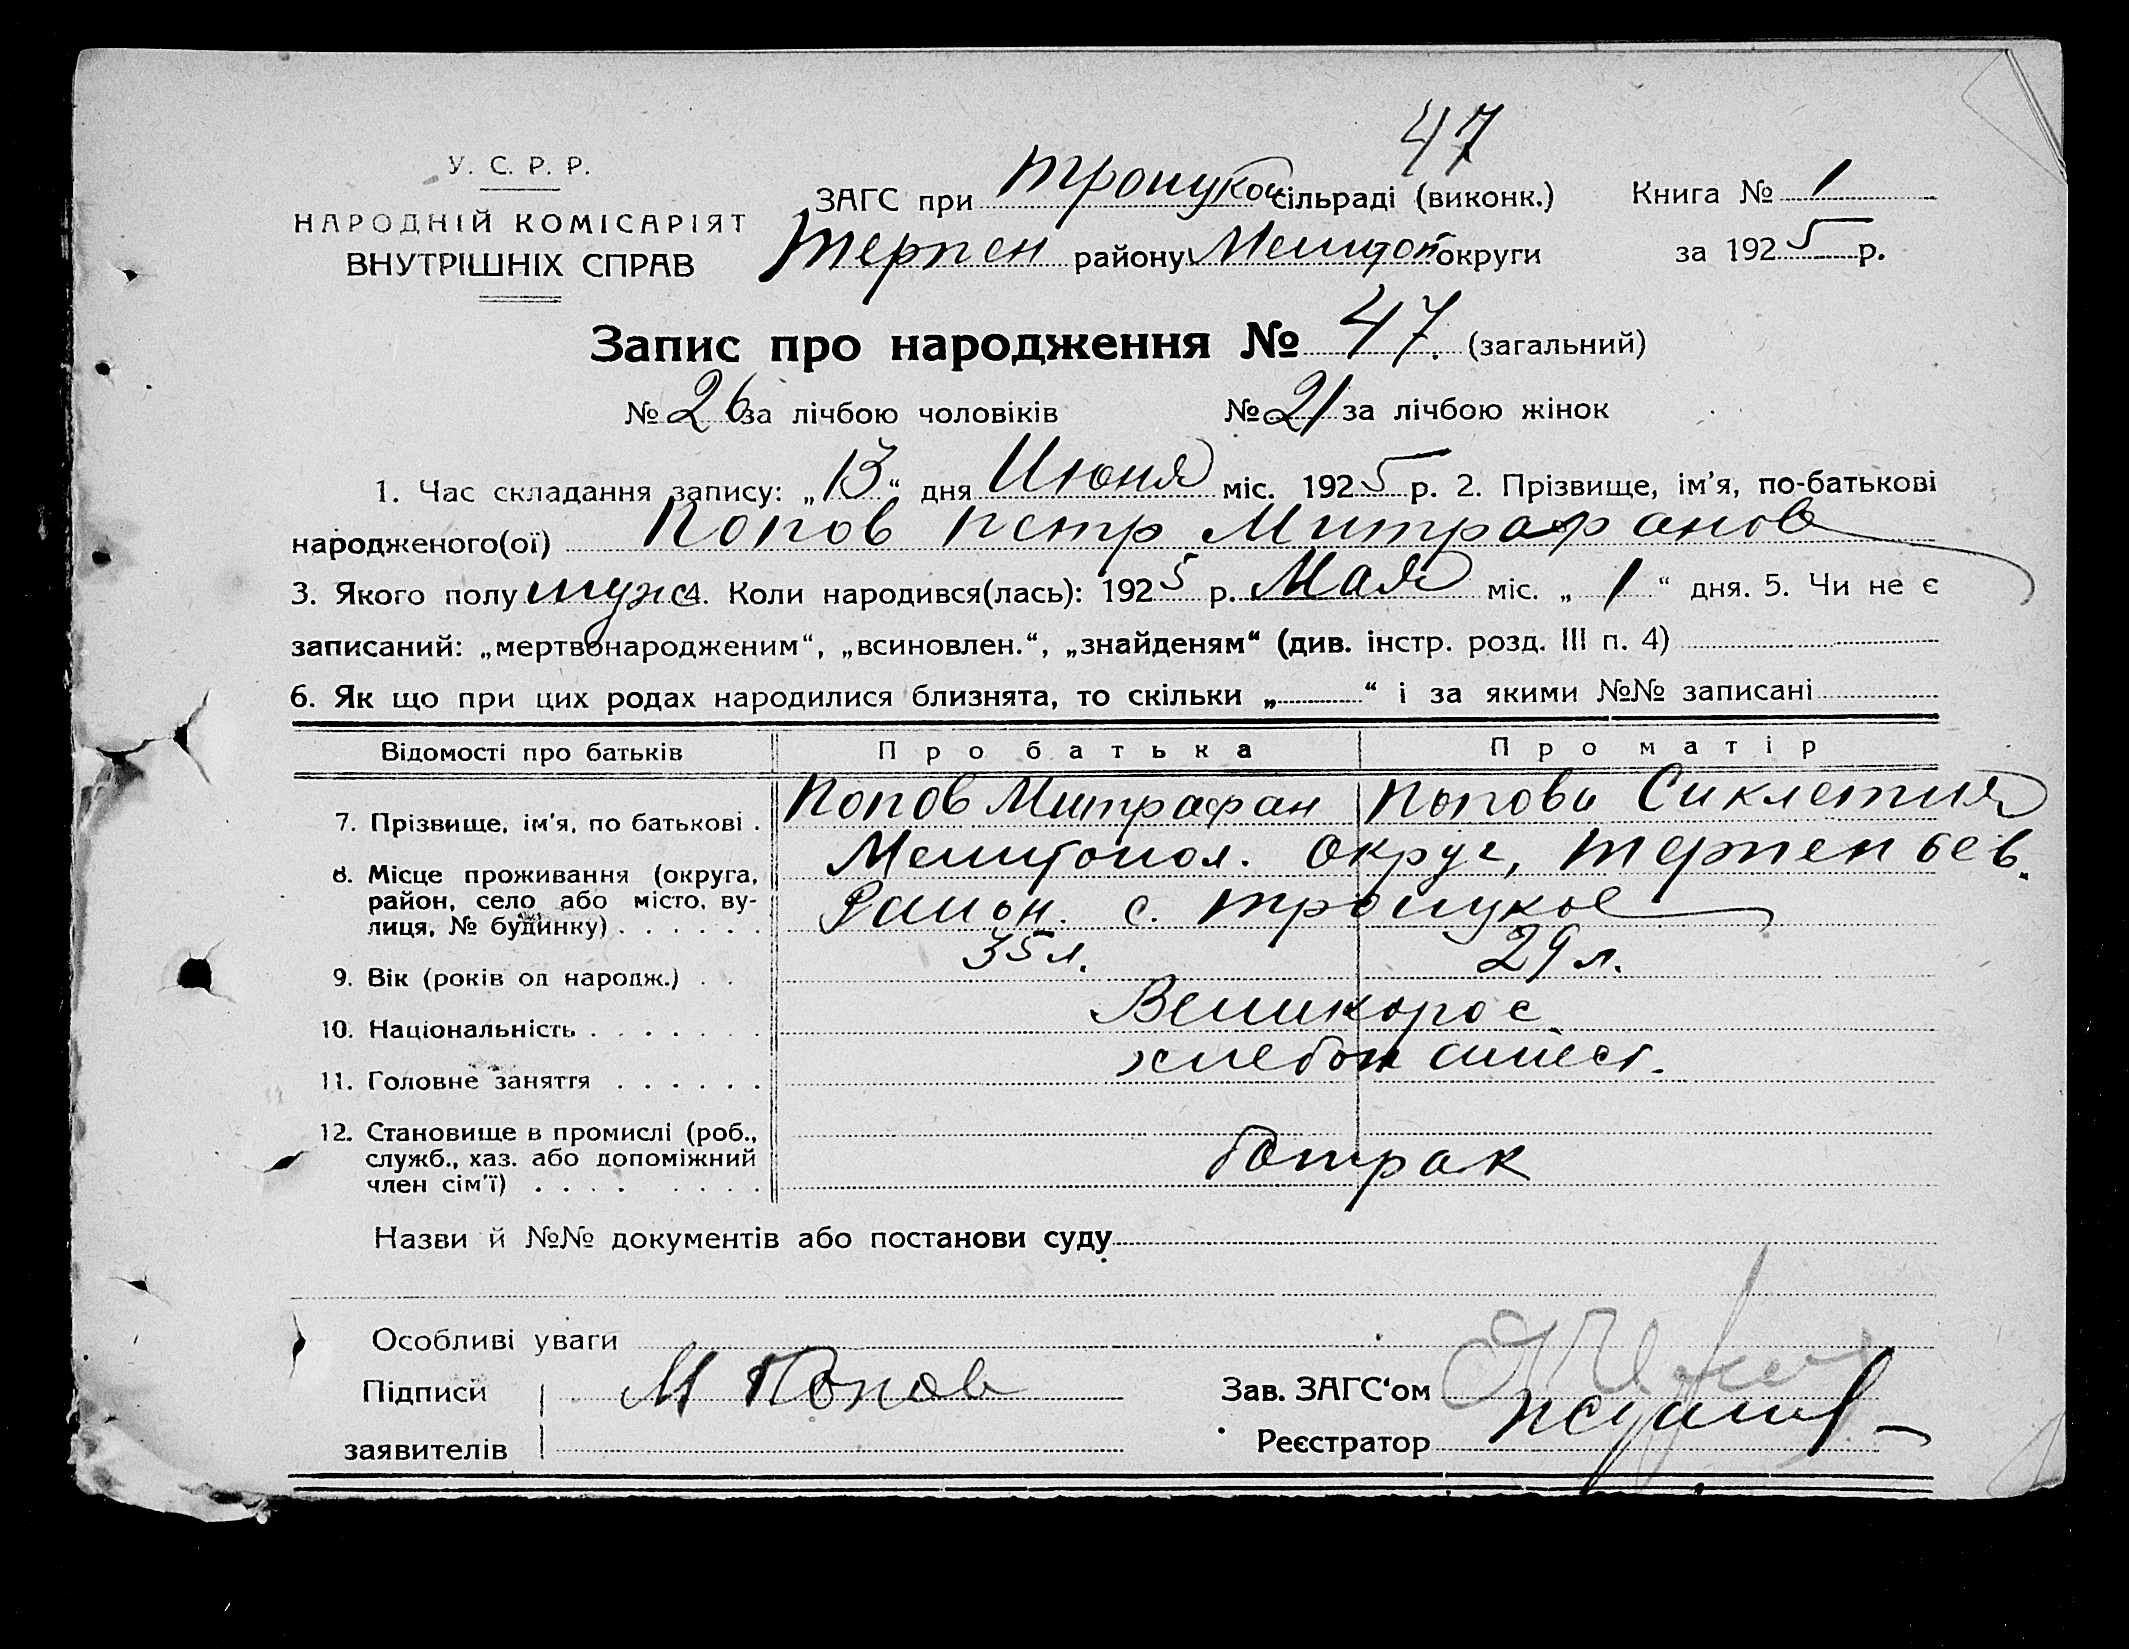 47
У. С. Р. Р.
НАРОДНІЙ КОМІСАРІЯТ
ВНУТРІШНІХ СПРАВ
ЗАГС при Троицкой сільраді (виконк.) Книга № 1
Терпен району Мелитоп округи за 1925 р.
Запис про народження № 47. (загальний)
№ 26 за лічбою чоловіків № 21 за лічбою жінок
1. Час складання запису: „13“ дня Июня міс. 1925 р. 2. Прізвище, ім'я, по-батькові
народженого(ої) Попов Петр Митрафанов
3. Якого полу муж 4. Коли народився(лась): 1925 р. Мая міс. „1“ дня. 5. Чи не є
записаний: „мертвонародженим“, „всиновлен.“, „знайденям“ (див. інстр. розд. III п. 4)
6. Як що при цих родах народилися близнята, то скільки „ “ і за якими №№ записані
Відомості про батьків Про батька Про матір
7. Прізвище, ім'я, по батькові . Попов Митрафан Попова Сиклетия
8. Місце проживання (округа, район, село або місто, вулиця, № будинку) . . . . . . Мелитопол. Округ, Терпеньев.
Район. с. Троицкое
9. Вік (років од народж.) . . 35 л. 29 л.
10. Національність . . . . . . . Великорос.
11. Головне заняття . . . . . . хлебопашест.
12. Становище в промислі (роб.,
служб., хаз. або допоміжний
член сім'ї) . . . . . . . . батрак
Назви й №№ документів або постанови суду
Особливі уваги
Підписи М Попов Зав. ЗАГС‘ом
заявителів Реєстратор